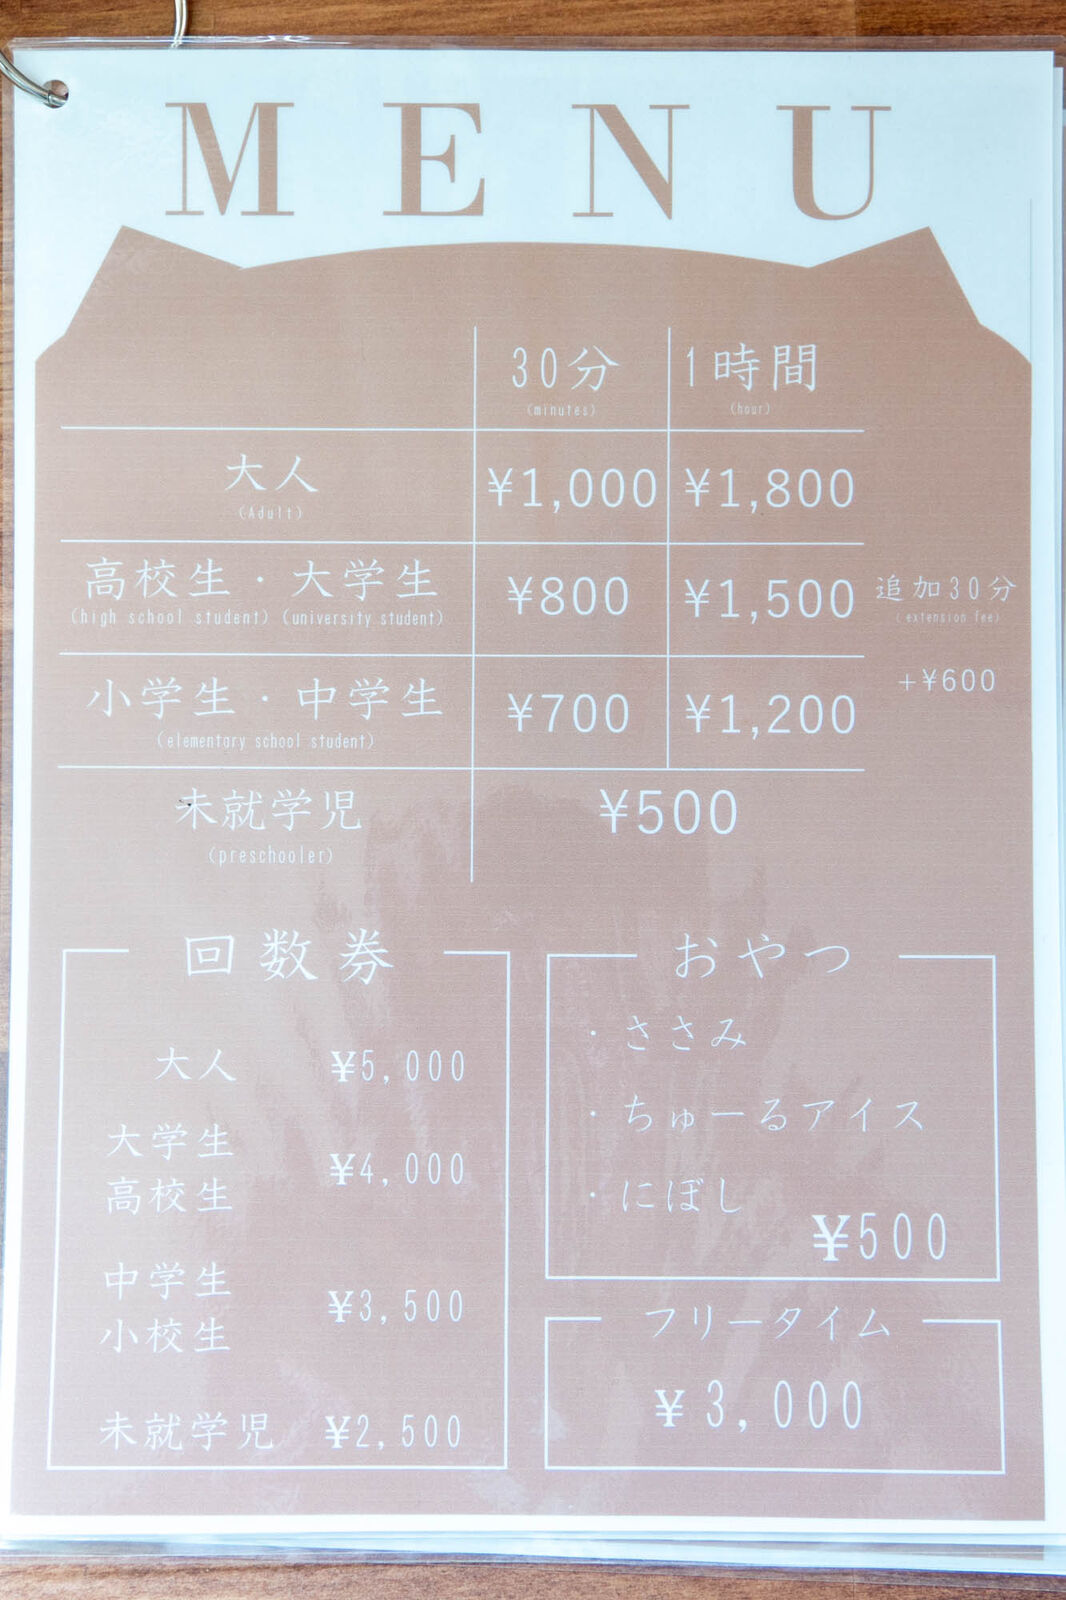 MENU
30分 1時間
(minutes) (hour)
大人 ¥1,000 ¥1,800
(Adult)
高校生・大学生 ¥800 ¥1,500
(high school student) (university student)
追加30分
(extension fee)
+¥600
小学生・中学生 ¥700 ¥1,200
(elementary school student)
未就学児 ¥500
(preschooler)
回数券
大人 ¥5,000
大学生
高校生 ¥4,000
中学生
小校生 ¥3,500
未就学児 ¥2,500
おやつ
・ささみ
・ちゅーるアイス
・にぼし
¥500
フリータイム
¥3,000